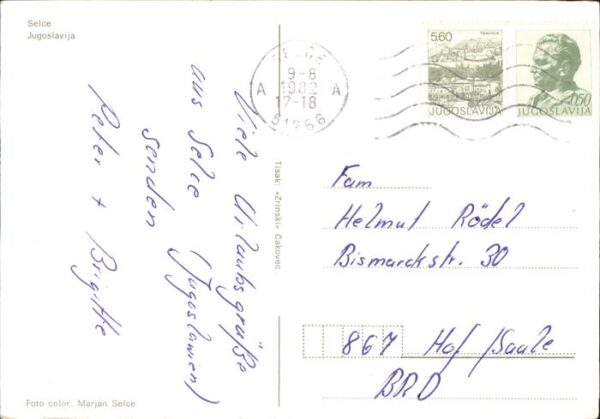 Selce
Jugoslavija
SELCE
9-8
1982
A A
17-18
51266
5.60
TRAVNIK
JUGOSLAVIJA
JUGOSLAVIJA
Viele Urlaubsgrüße
aus Selce (Jugoslawien)
senden
Peter + Brigitte
Tisak: »Zrinski« Čakovec
Fam
Helmut Rödel
Bismarckstr. 30
867 Hof /Saale
BRD
Foto color: Marjan Selce